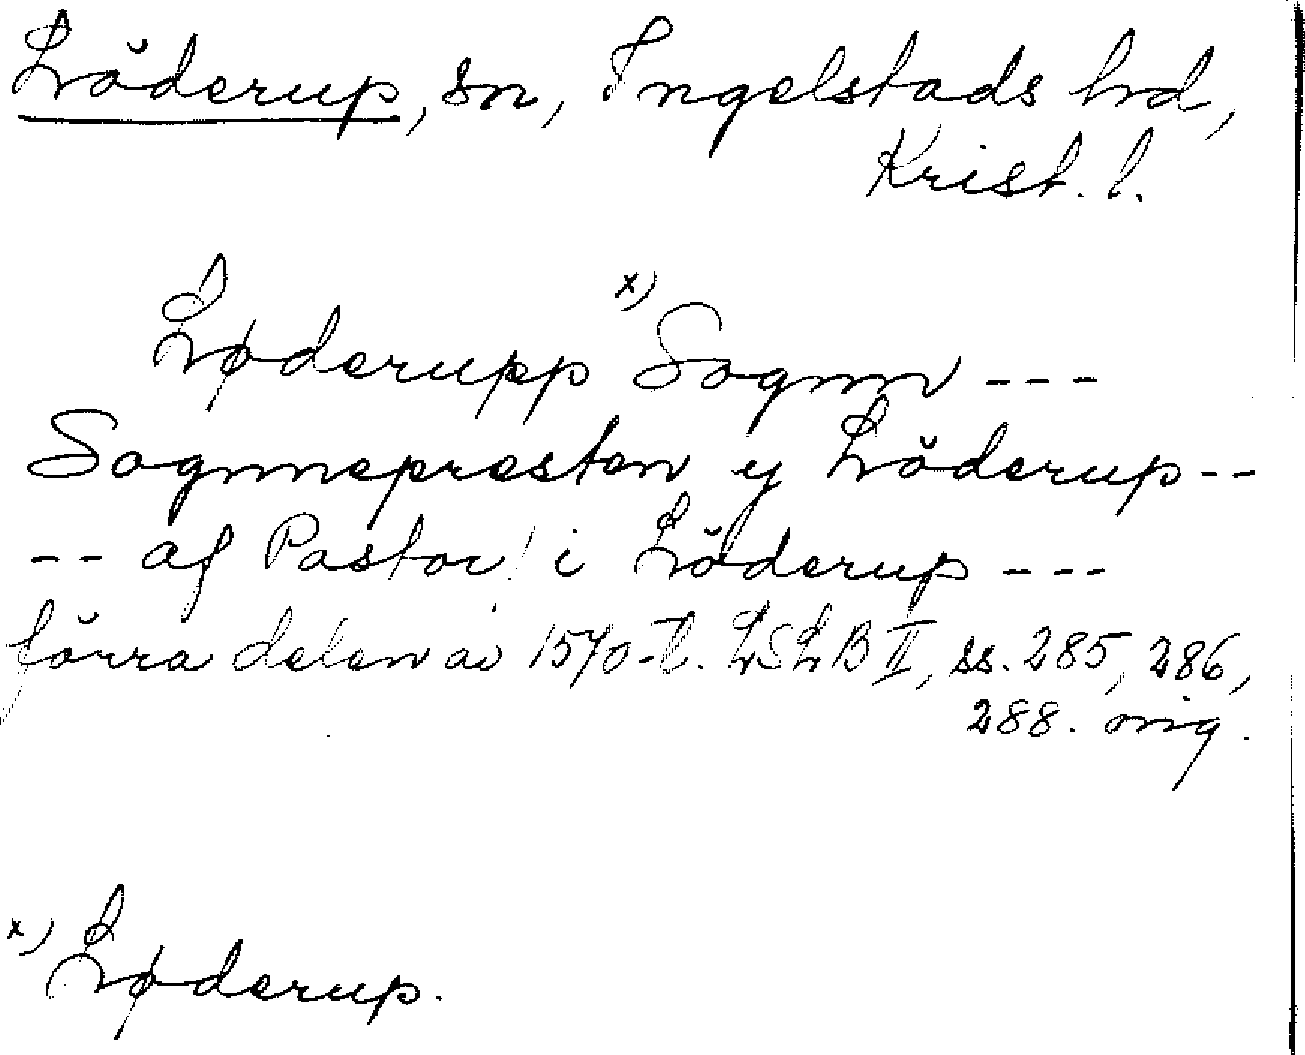 Löderup, sn, Ingelstads hd,
Krist. l.
Løderupp x) Sognn ---
Sognnepresten y Löderup --
-- af Pastor! i Löderup ---
förra delen av 1570-t. LSLB II, ss. 285, 286,
288. orig.
x) Løderup.